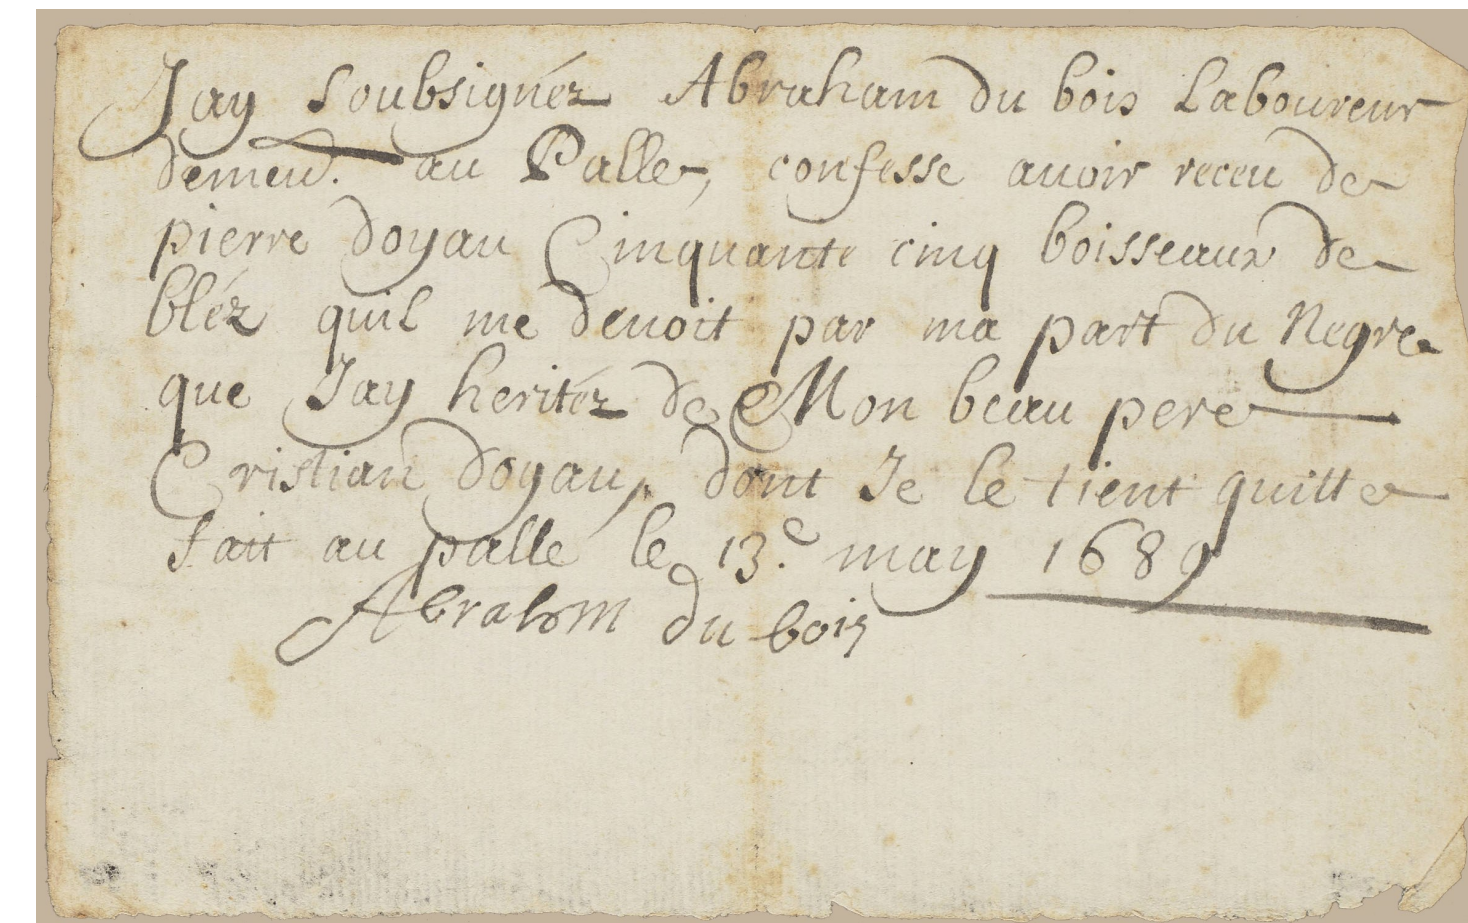 Jay soubsignéz Abraham du bois Laboureur
demeu. au Palle, confesse auoir receu de
pierre doyau Cinquante cinq boisseaux de
bléz quil me deuoit par ma part du Negre
que Jay heritéz de Mon beau pere
Cristian doyau, dont Je le tient quitte
fait au pallé le 13.e may 1689
Abrahm du bois